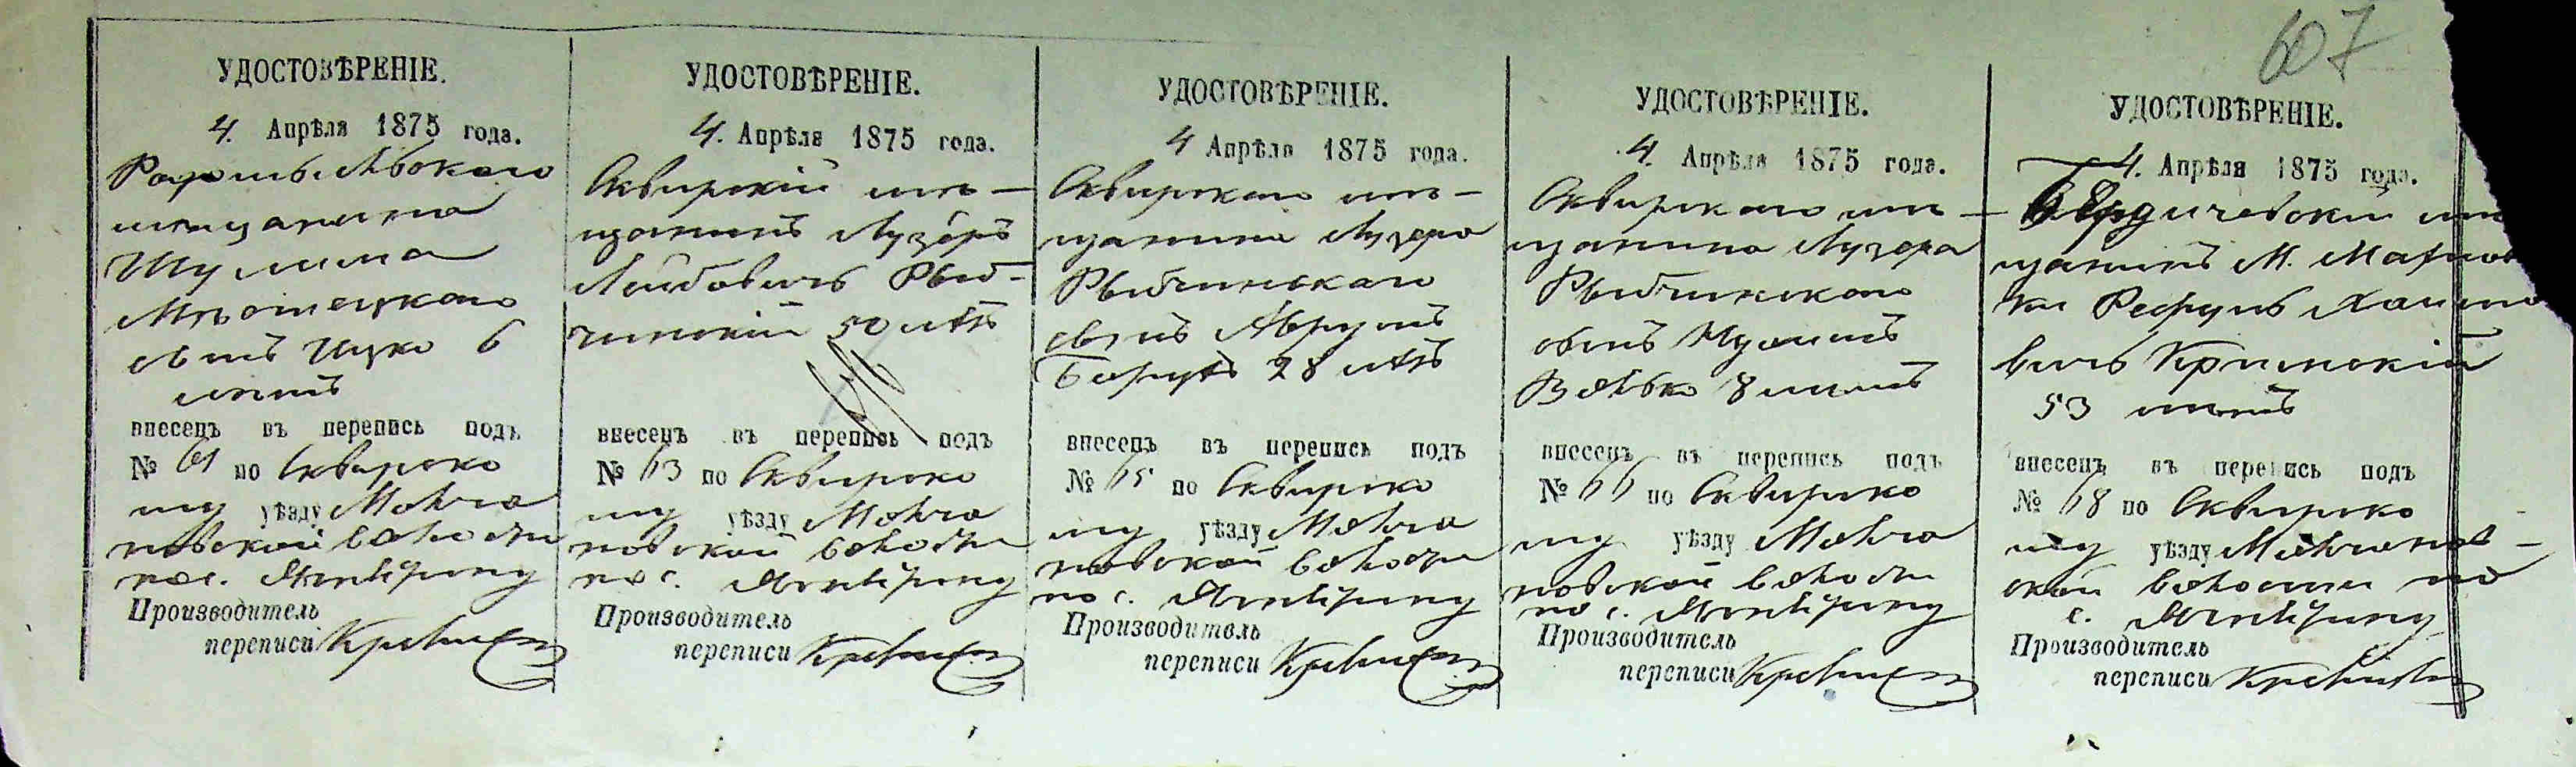 607
УДОСТОВѢРЕНІЕ.
4. Апрѣля 1875 года.
мѣщанина
Шулима
сынъ Ицко 6
лѣтъ
внесенъ въ перепись подъ
№ 61 по Сквирско
му уѣзду Молча
новской волости
по с.
Производитель
переписи
УДОСТОВѢРЕНІЕ.
4. Апрѣля 1875 года.
Сквирскій мѣ-
щанинъ Лузеръ
Лейбовичъ Рыб-
чинскій 50 лѣтъ
внесенъ въ перепись подъ
№ 63 по Сквирско
му уѣзду Молча
новской волости
по с.
Производитель
переписи
УДОСТОВѢРЕНІЕ.
4 Апрѣля 1875 года.
Сквирскаго мѣ-
щанина Лузера
Рыбчинскаго
сынъ Аврумъ
Борухъ 28 лѣтъ
внесенъ въ перепись подъ
№ 65 по Сквирско
му уѣзду Молча
новской волости
по с.
Производитель
переписи
УДОСТОВѢРЕНІЕ.
4. Апрѣля 1875 года.
Сквирскаго мѣ-
щанина Лузера
Рыбчинскаго
сынъ
Волько 8 лѣтъ
внесенъ въ перепись подъ
№ 66 по Сквирско
му уѣзду Молча
новской волости
по с.
Производитель
переписи
УДОСТОВѢРЕНІЕ.
4. Апрѣля 1875 года.
Бердичевскій мѣ
щанинъ М. Махнов
ки Хаимо
вичъ Кримскій
53 лѣтъ
внесенъ въ перепись подъ
№ 68 по Сквирско
му уѣзду Молчанов-
ской волости по
с.
Производитель
переписи